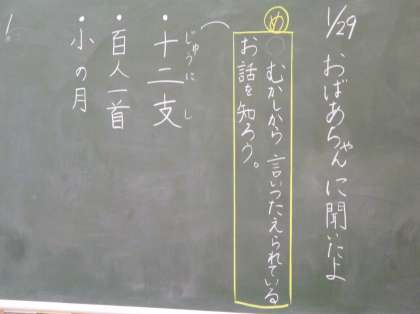 1/29 おばあちゃんに聞いたよ
め
むかしから 言いつたえられている
お話を知ろう。
・十二支
じゅうにし
・百人一首
・小の月